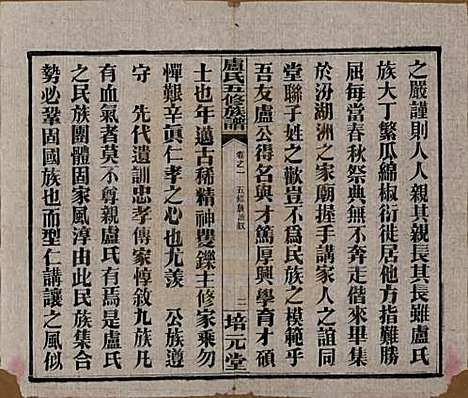 之嚴謹則人人親其親長其長雖盧氏
族大丁繁瓜綿椒衍徙居他方指難勝
屈每當春秋祭典無不奔走偕來畢集
於汾湖洲之家廟握手講家人之誼同
堂聯子姓之歡豈不為民族之模範乎
吾友盧公得名與才篤厚興學育才碩
盧氏五修族譜
卷之一
五修族譜敘
二
培元堂
士也年邁古稀精神雙鑠主修家乘勿
憚艱辛眞仁孝之心也尤羨 公族遵
守 先代遺訓忠孝傳家惇敘九族凡
有血氣者莫不尊親盧氏有焉是盧氏
之民族團體固家風淳由此民族集合
勢必鞏固國族也而型仁講讓之風似